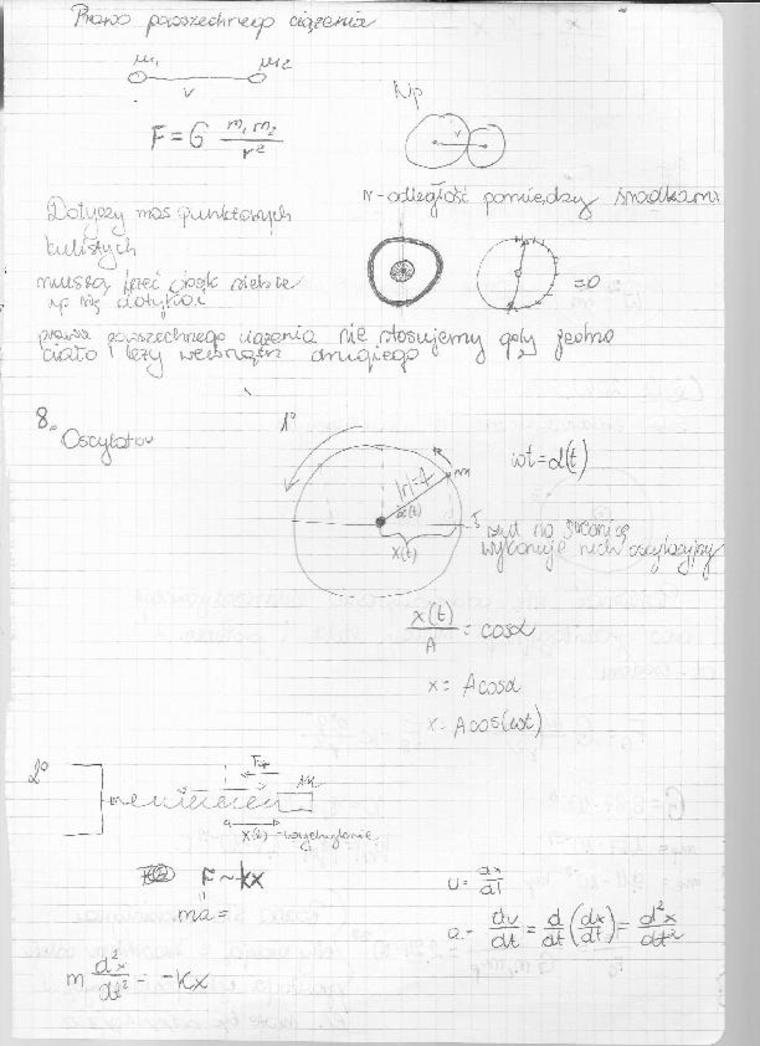 Prawo powszechnego ciążenia
m₁ m₂
r
Np
F = G m₁ m₂ / r²
r
r - odległość pomiędzy środkami
Dotyczy mas punktowych
kulistych
muszą być
= 0
prawa powszechnego ciążenia nie stosujemy gdy jedno
ciało leży wewnątrz drugiego
8.
Oscylator
1°
|r|=A
m
α(t)
x(t)
ωt = α(t)
rzut na
wykonuje ruch oscylacyjny
x(t)/A = cosα
x = A cosα
x = A cos(ωt)
2°
x(t) - wychylenie
F ~ kx
ma =
m d²x/dt² = -kx
v = dx/dt
a = dv/dt = d/dt (dx/dt) = d²x/dt²